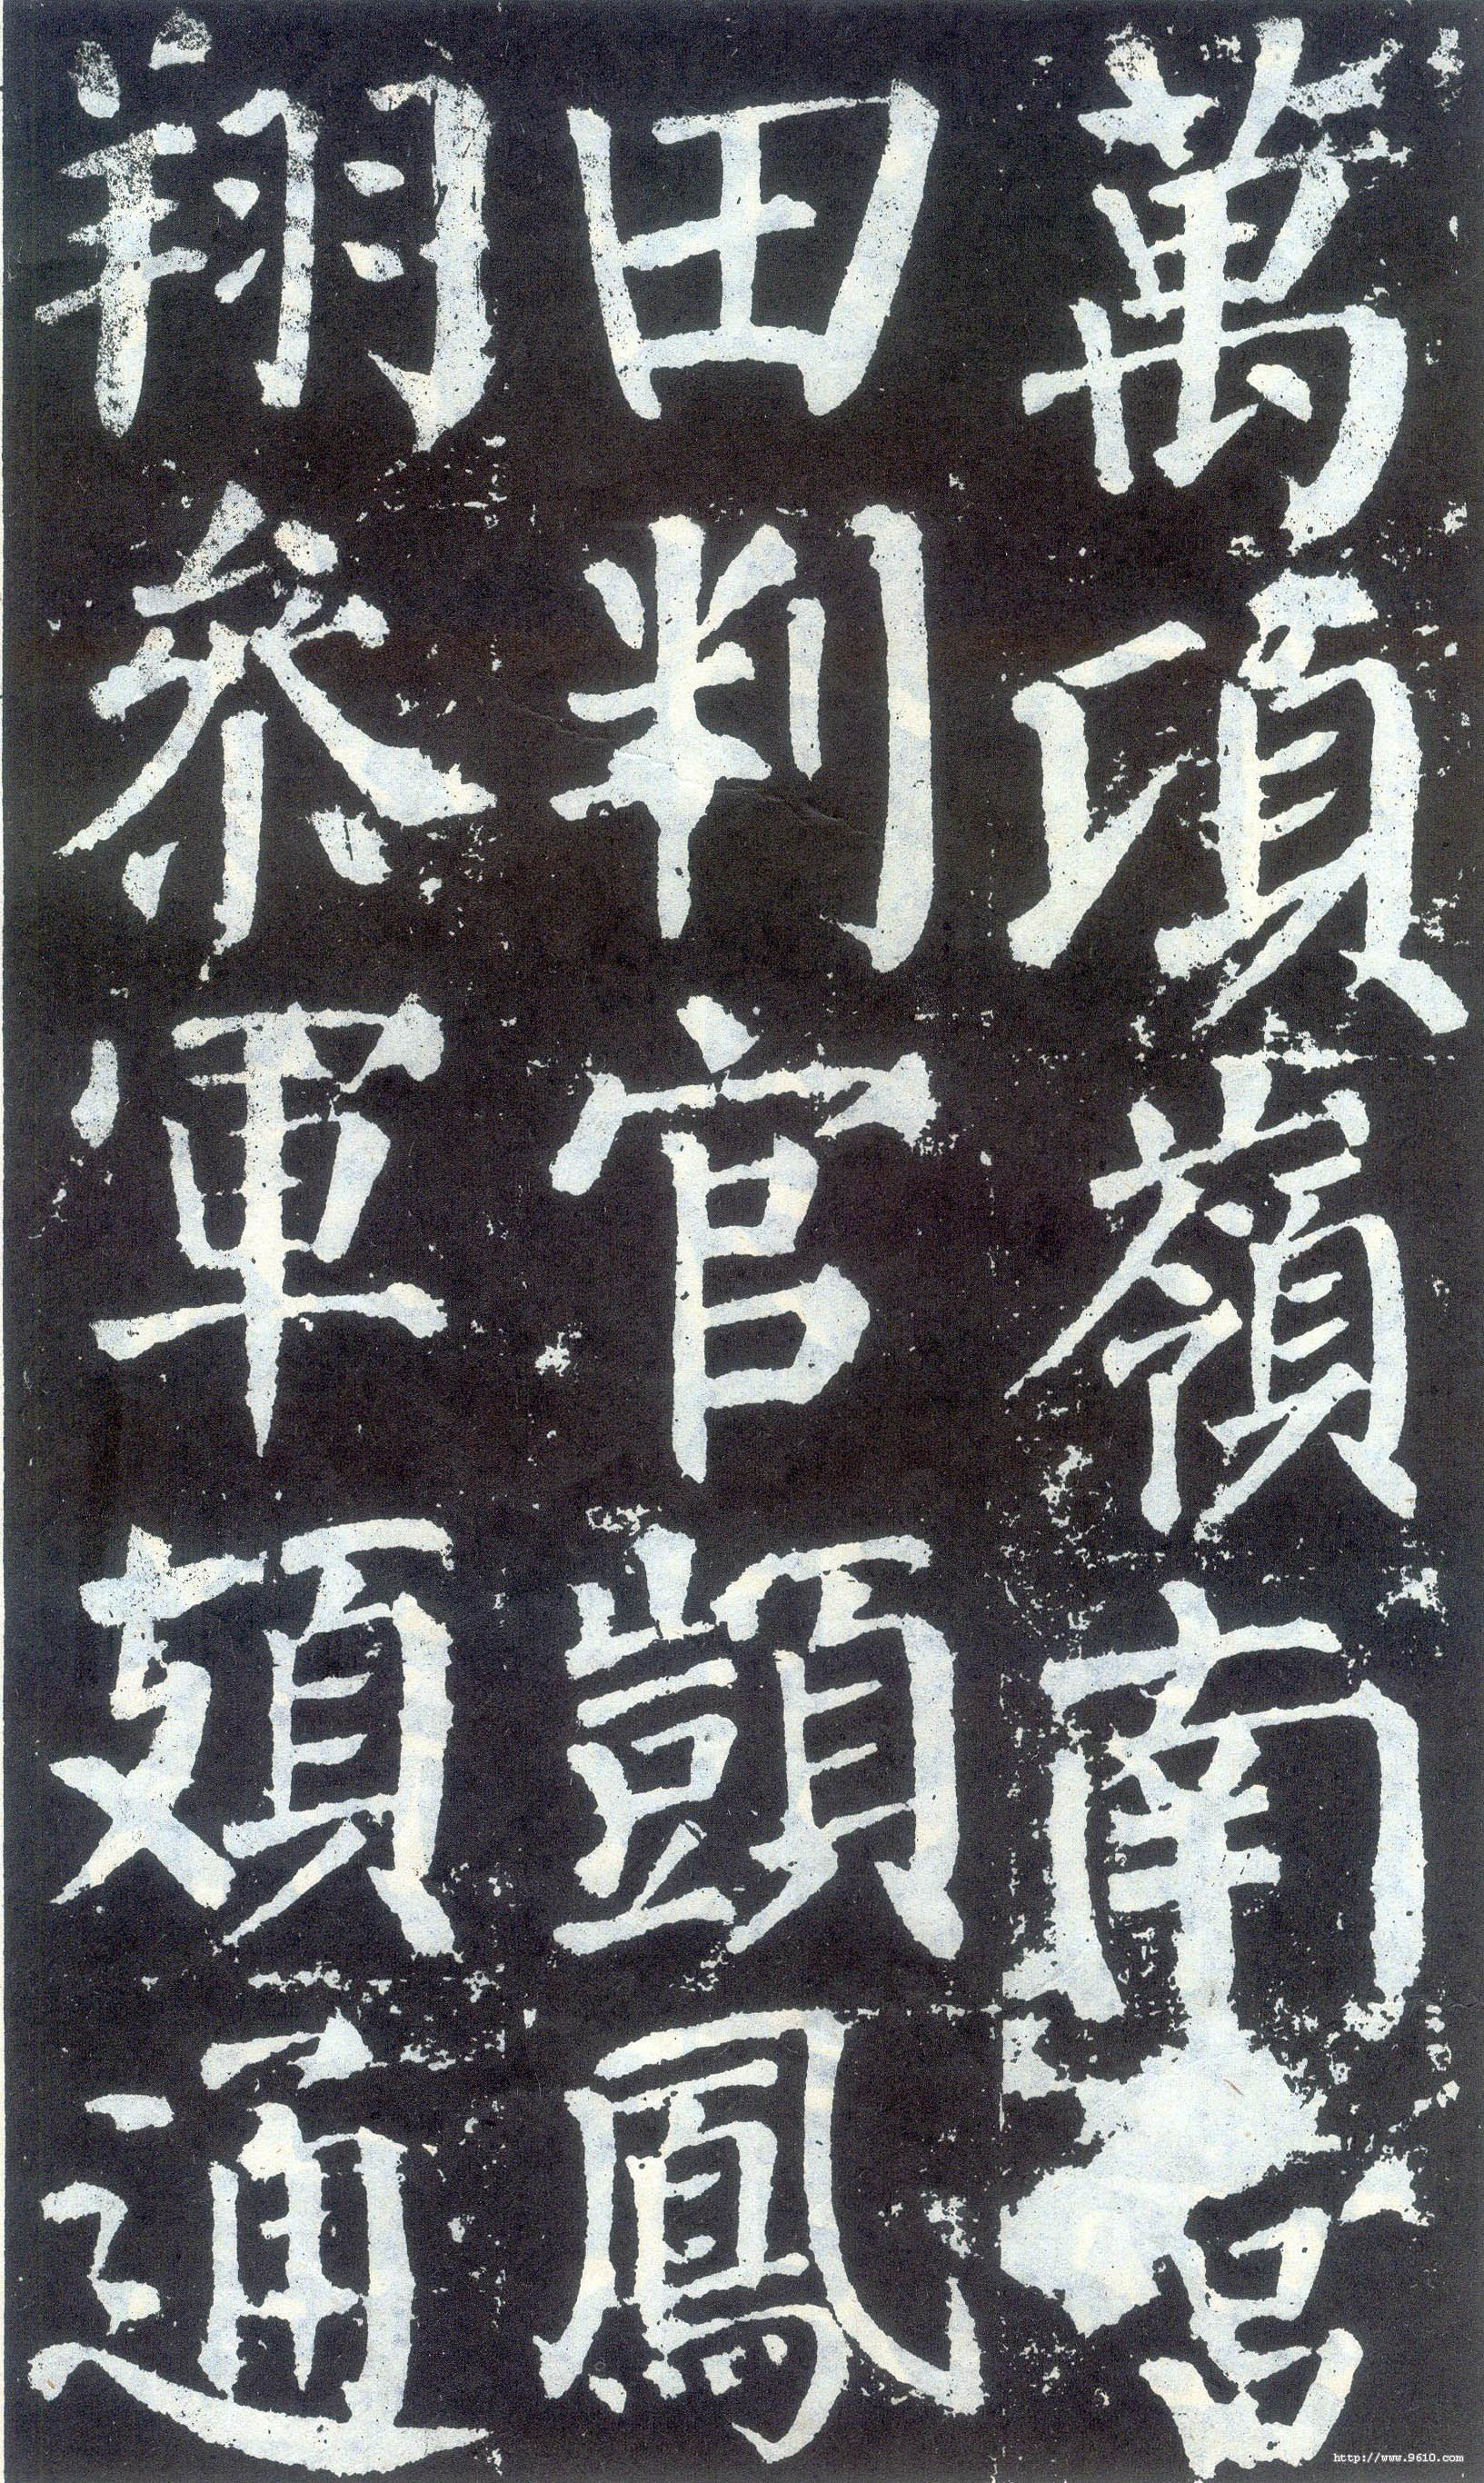 萬頃嶺南營
田判官顗鳳
翔參軍頍通
http://www.9610.com